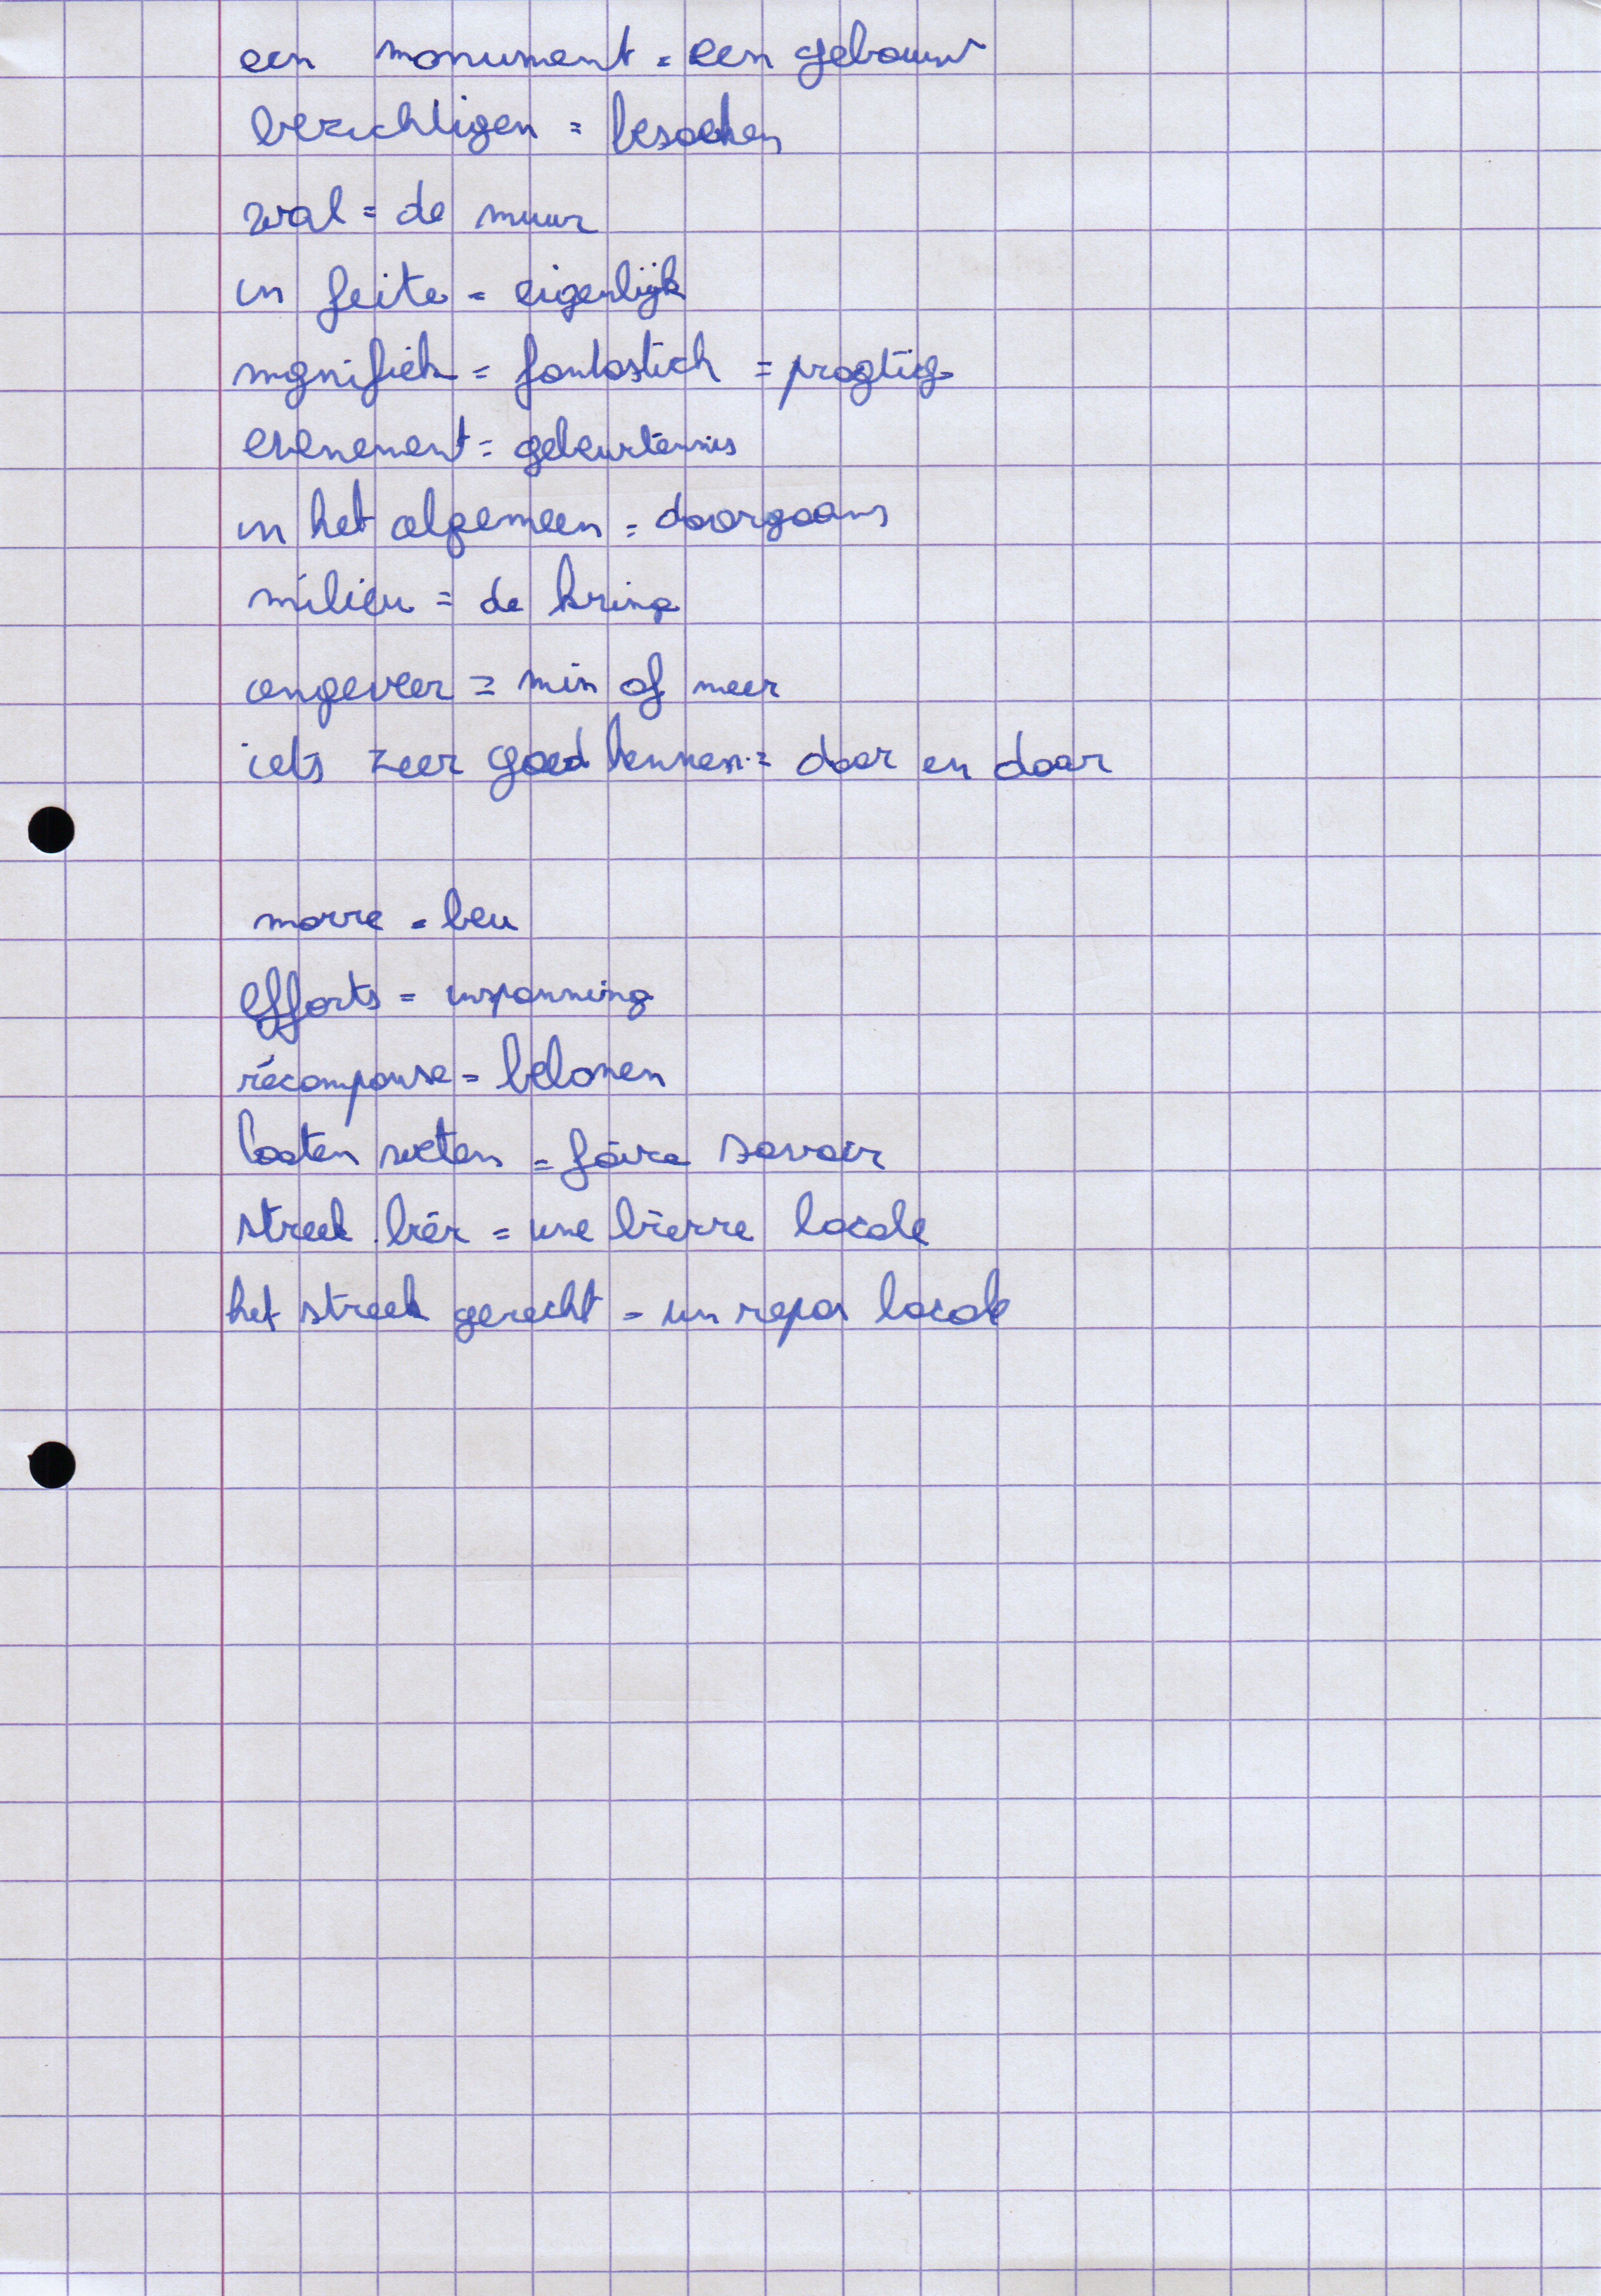 een monument = een gebouw
bezichtigen = besoeken
wal = de muur
in feite = eigenlijk
mgnifiek = fantastich = pragtig
evenement = gebeurtennis
in het algemeen = doorgaans
milieu = de kring
ongeveer = min of meer
iets zeer goed kennen = door en door
marre = beu
efforts = inspanning
récompense = belonen
laaten weten = faire savoir
streek bier = une bierre locale
het streek gerecht = un repas locale